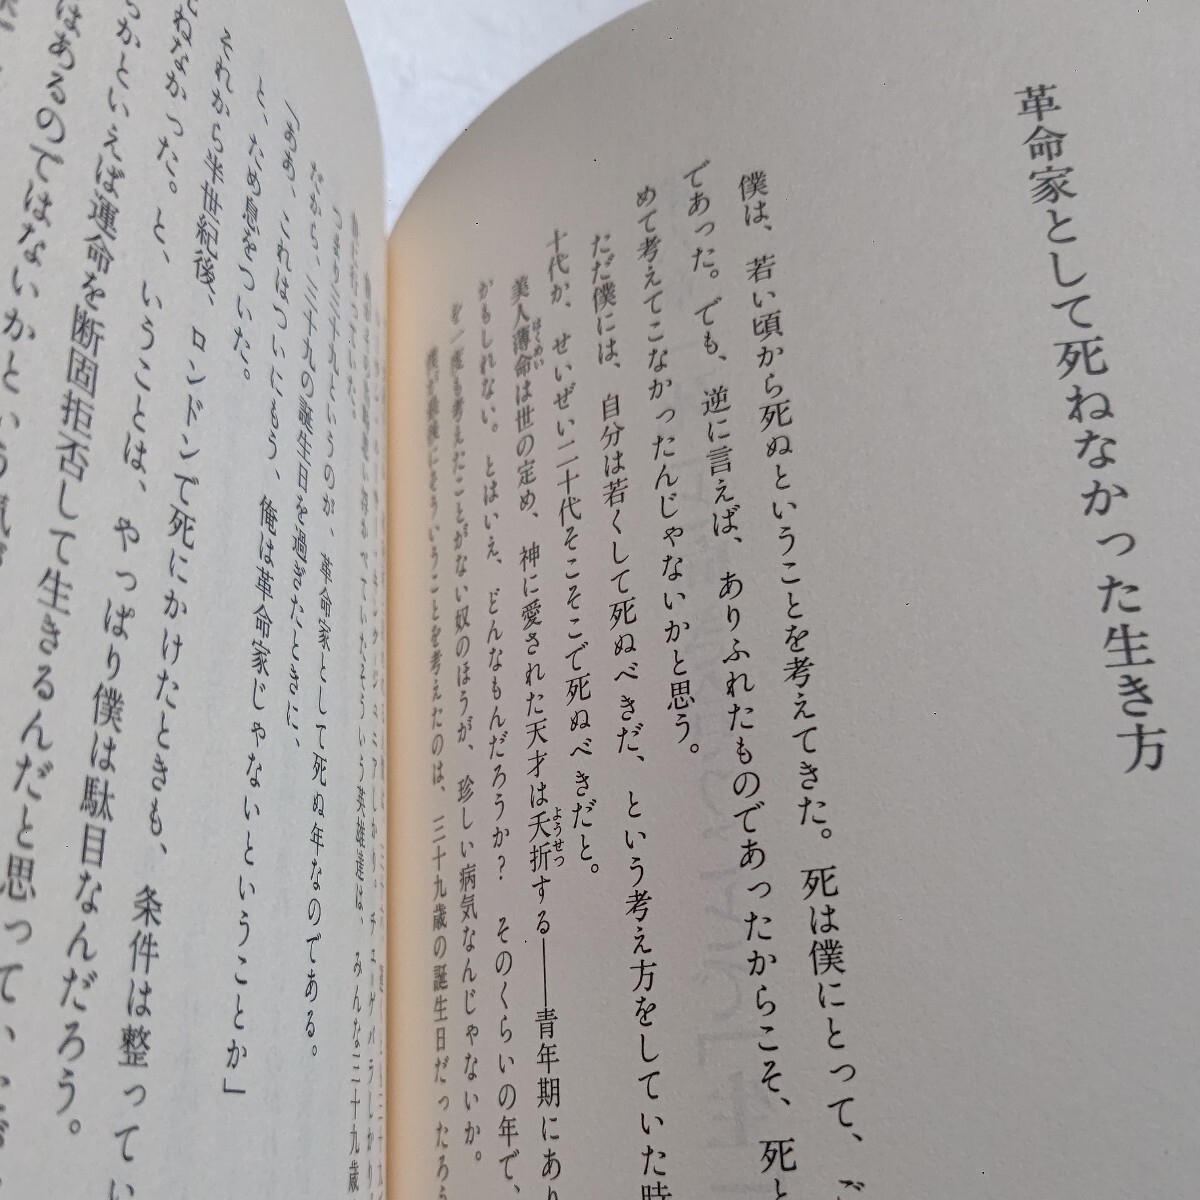 革命家として死ねなかった生き方
僕は、若い頃から死ぬということを考えてきた。死は僕にとって、ご
であった。でも、逆に言えば、ありふれたものであったからこそ、死と
めて考えてこなかったんじゃないかと思う。
ただ僕には、自分は若くして死ぬべきだ、という考え方をしていた時
十代か、せいぜい二十代そこそこで死ぬべきだと。
美人薄命は世の定め、神に愛された天才は夭折する──青年期にあり
はくめい
ようせつ
かもしれない。とはいえ、どんなもんだろうか？　そのくらいの年で、
を一度も考えたことがない奴のほうが、珍しい病気なんじゃないか。
僕が最後にそういうことを考えたのは、三十九歳の誕生日だったろう
いたそういう英雄達は、みんな三十九歳
つまり三十九というのが、革命家として死ぬ年なのである。
だから、三十九の誕生日を過ぎたときに、
「ああ、これはついにもう、俺は革命家じゃないということか」
と、ため息をついた。
それから半世紀後、ロンドンで死にかけたときも、条件は整ってい
ねなかった。と、いうことは、やっぱり僕は駄目なんだろう。
かといえば運命を断固拒否して生きるんだと思って、
はあるのではないかという気が